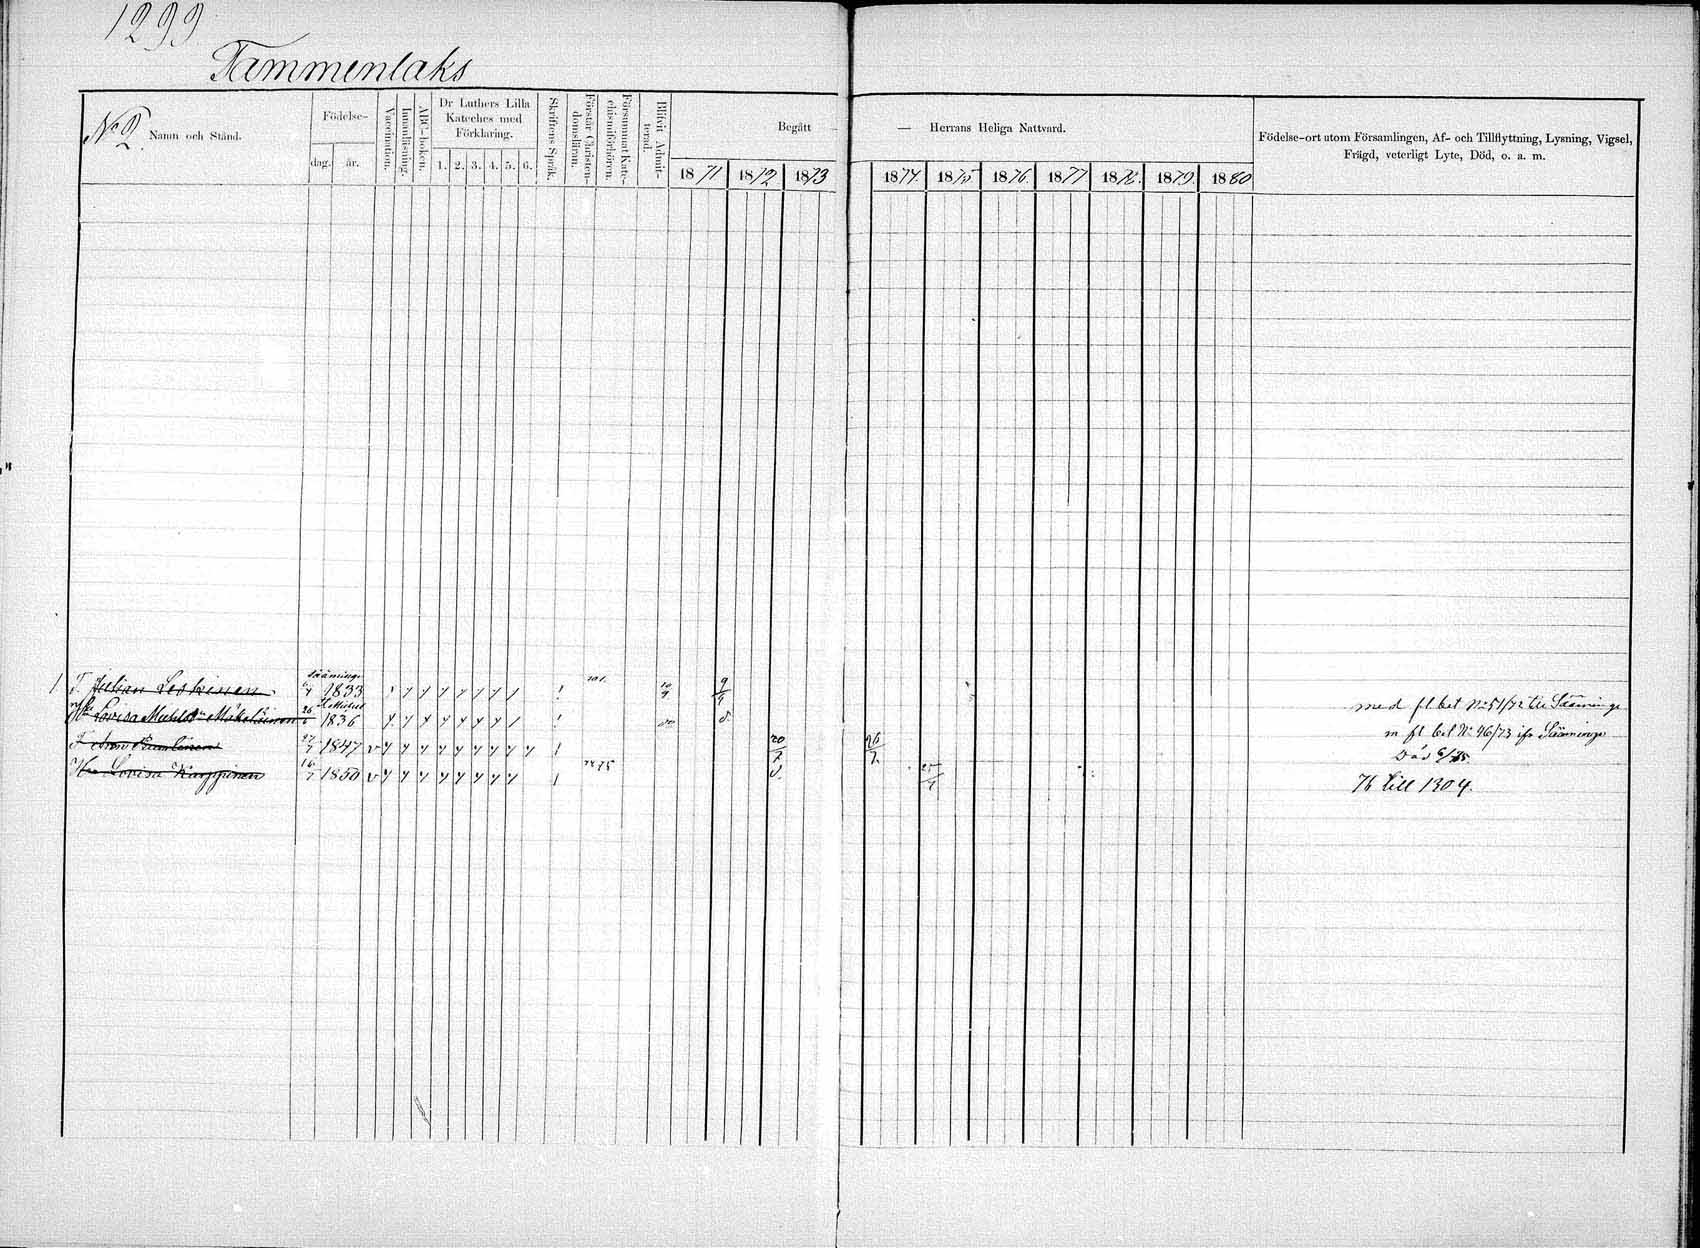 1299
Tammenlaks
No 2. Namn och Stånd.
Födelse-
dag. år.
Vaccination.
Innanläsning.
ABC-boken.
Dr Luthers Lilla
Kateches med
Förklaring.
1. 2. 3. 4. 5. 6.
Skriftens Språk.
Förstår Christen-
domsläran.
Försummat Kate-
chismiförhören.
Blifvit Admit-
terad.
Begått — — Herrans Heliga Nattvard.
1871 1872 1873 1874. 1875 1876. 1877 1878. 1879. 1880
Födelse-ort utom Församlingen, Af- och Tillflyttning, Lysning, Vigsel,
Frägd, veterligt Lyte, Död, o. a. m.
Sääminge
1 T. Julian Leskinen 1833 9
med fl bet No 51/72 till Sääminge
Lovisa Mökeläinen 26/6 1836
m fl bet No 46/73 ifr Sääminge
T. 27/7 1847 v 20/7 26/7
Död
Hu Lovisa Karppinen 16/7 1850 v 25/7
76 till 1304.